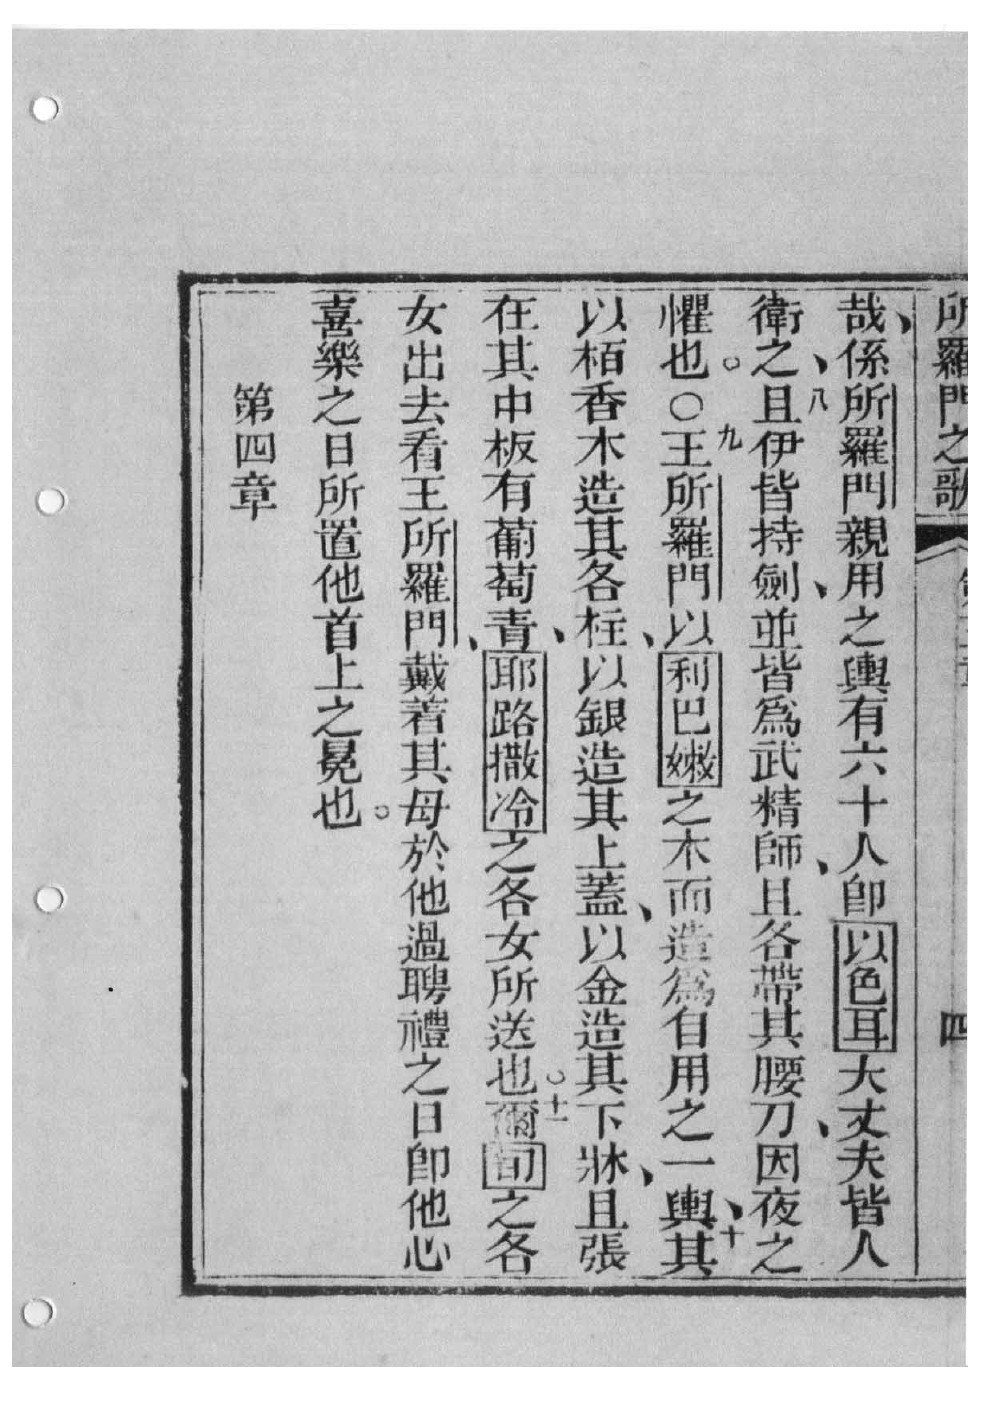 所羅門之歌 四
哉係所羅門親用之輿有六十人卽以色耳大丈夫皆人
衛之八且伊皆持劍並皆爲武精師且各帶其腰刀因夜之
懼也○九王所羅門以利巴嫩之木而造爲自用之一輿十其
以栢香木造其各柱以銀造其上蓋以金造其下牀且張
在其中板有葡萄青耶路撒冷之各女所送也十一爾旬之各
女出去看王所羅門戴着其母於他過聘禮之日卽他心
喜樂之日所置他首上之冕也
第四章